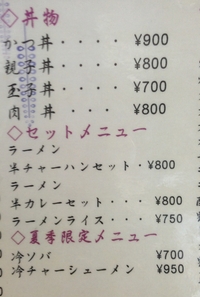 ◇丼物
かつ丼・・・・¥900
親子丼・・・・¥800
玉子丼・・・・¥700
肉 丼 ・・・・¥800
◇セットメニュー
ラーメン
半チャーハンセット・¥800
ラーメン
半カレーセット・・・¥800
ラーメンライス・・・¥750
◇夏季限定メニュー
冷ソバ ¥700
冷チャーシューメン ¥950